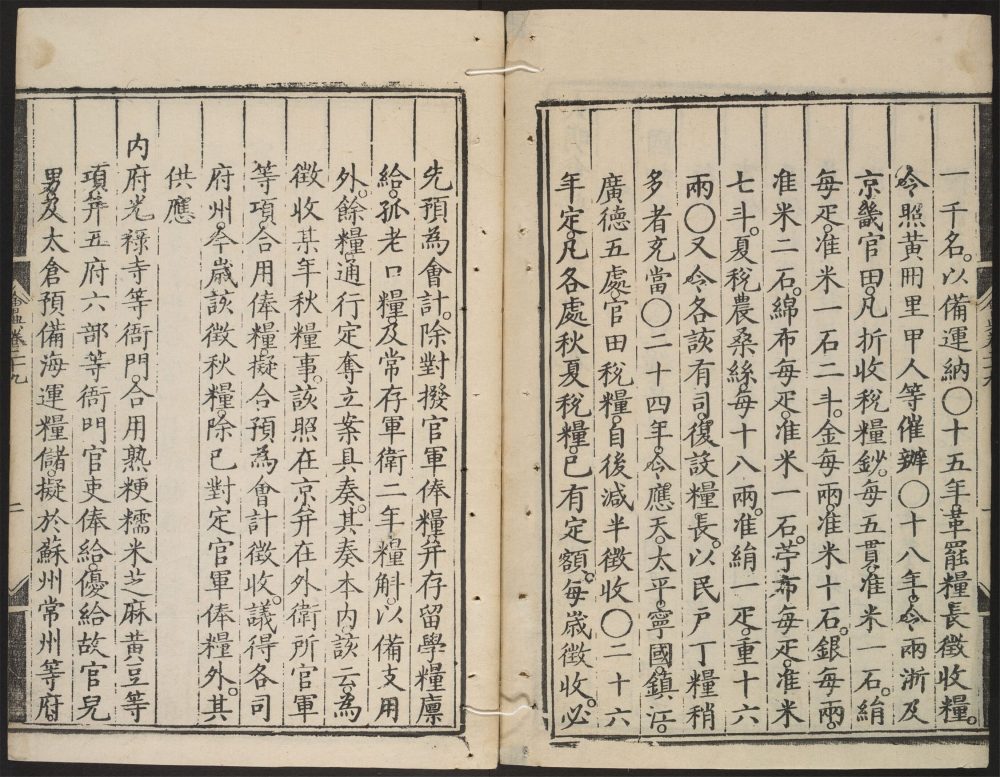 一千名。以備運納〇十五年。革罷糧長。徵收糧。
令照黃冊里甲人等催辦〇十八年。令兩浙及
京畿官田。凡折收稅糧。鈔每五貫。准米一石。絹
每疋。准米一石二斗。金每兩。准米十石。銀每兩。
准米二石。綿布每疋。准米一石。苧布每疋。准米
七斗。夏稅農桑絲。每十八兩。准絹一疋。重十六
兩〇又令各該有司。復設糧長。以民戶丁糧稍
多者充當〇二十四年。令應天。太平。寧國。鎮江。
廣德五處。官田稅糧。自後減半徵收〇二十六
年定。凡各處秋夏稅糧。已有定額。每歲徵收。必
先預為會計。除對撥官軍俸糧。并存留學糧廩
給孤老口糧。及常存軍衛二年糧斛。以備支用
外。餘糧。通行定奪。立案具奏。其奏本內。該云。為
徵收某年秋糧事。該照在京。并在外衛所官軍
等項。合用俸糧。擬合預為會計徵收。議得各司
府州。今歲該徵秋糧。除已對定官軍俸糧外。其
供應
內府光祿寺等衙門。合用熟粳糯米芝麻黃豆等
項。并五府六部等衙門官吏俸給。優給故官兒
男。及太倉預備海運糧儲。擬於蘇州常州等府。
會典卷二十九
二